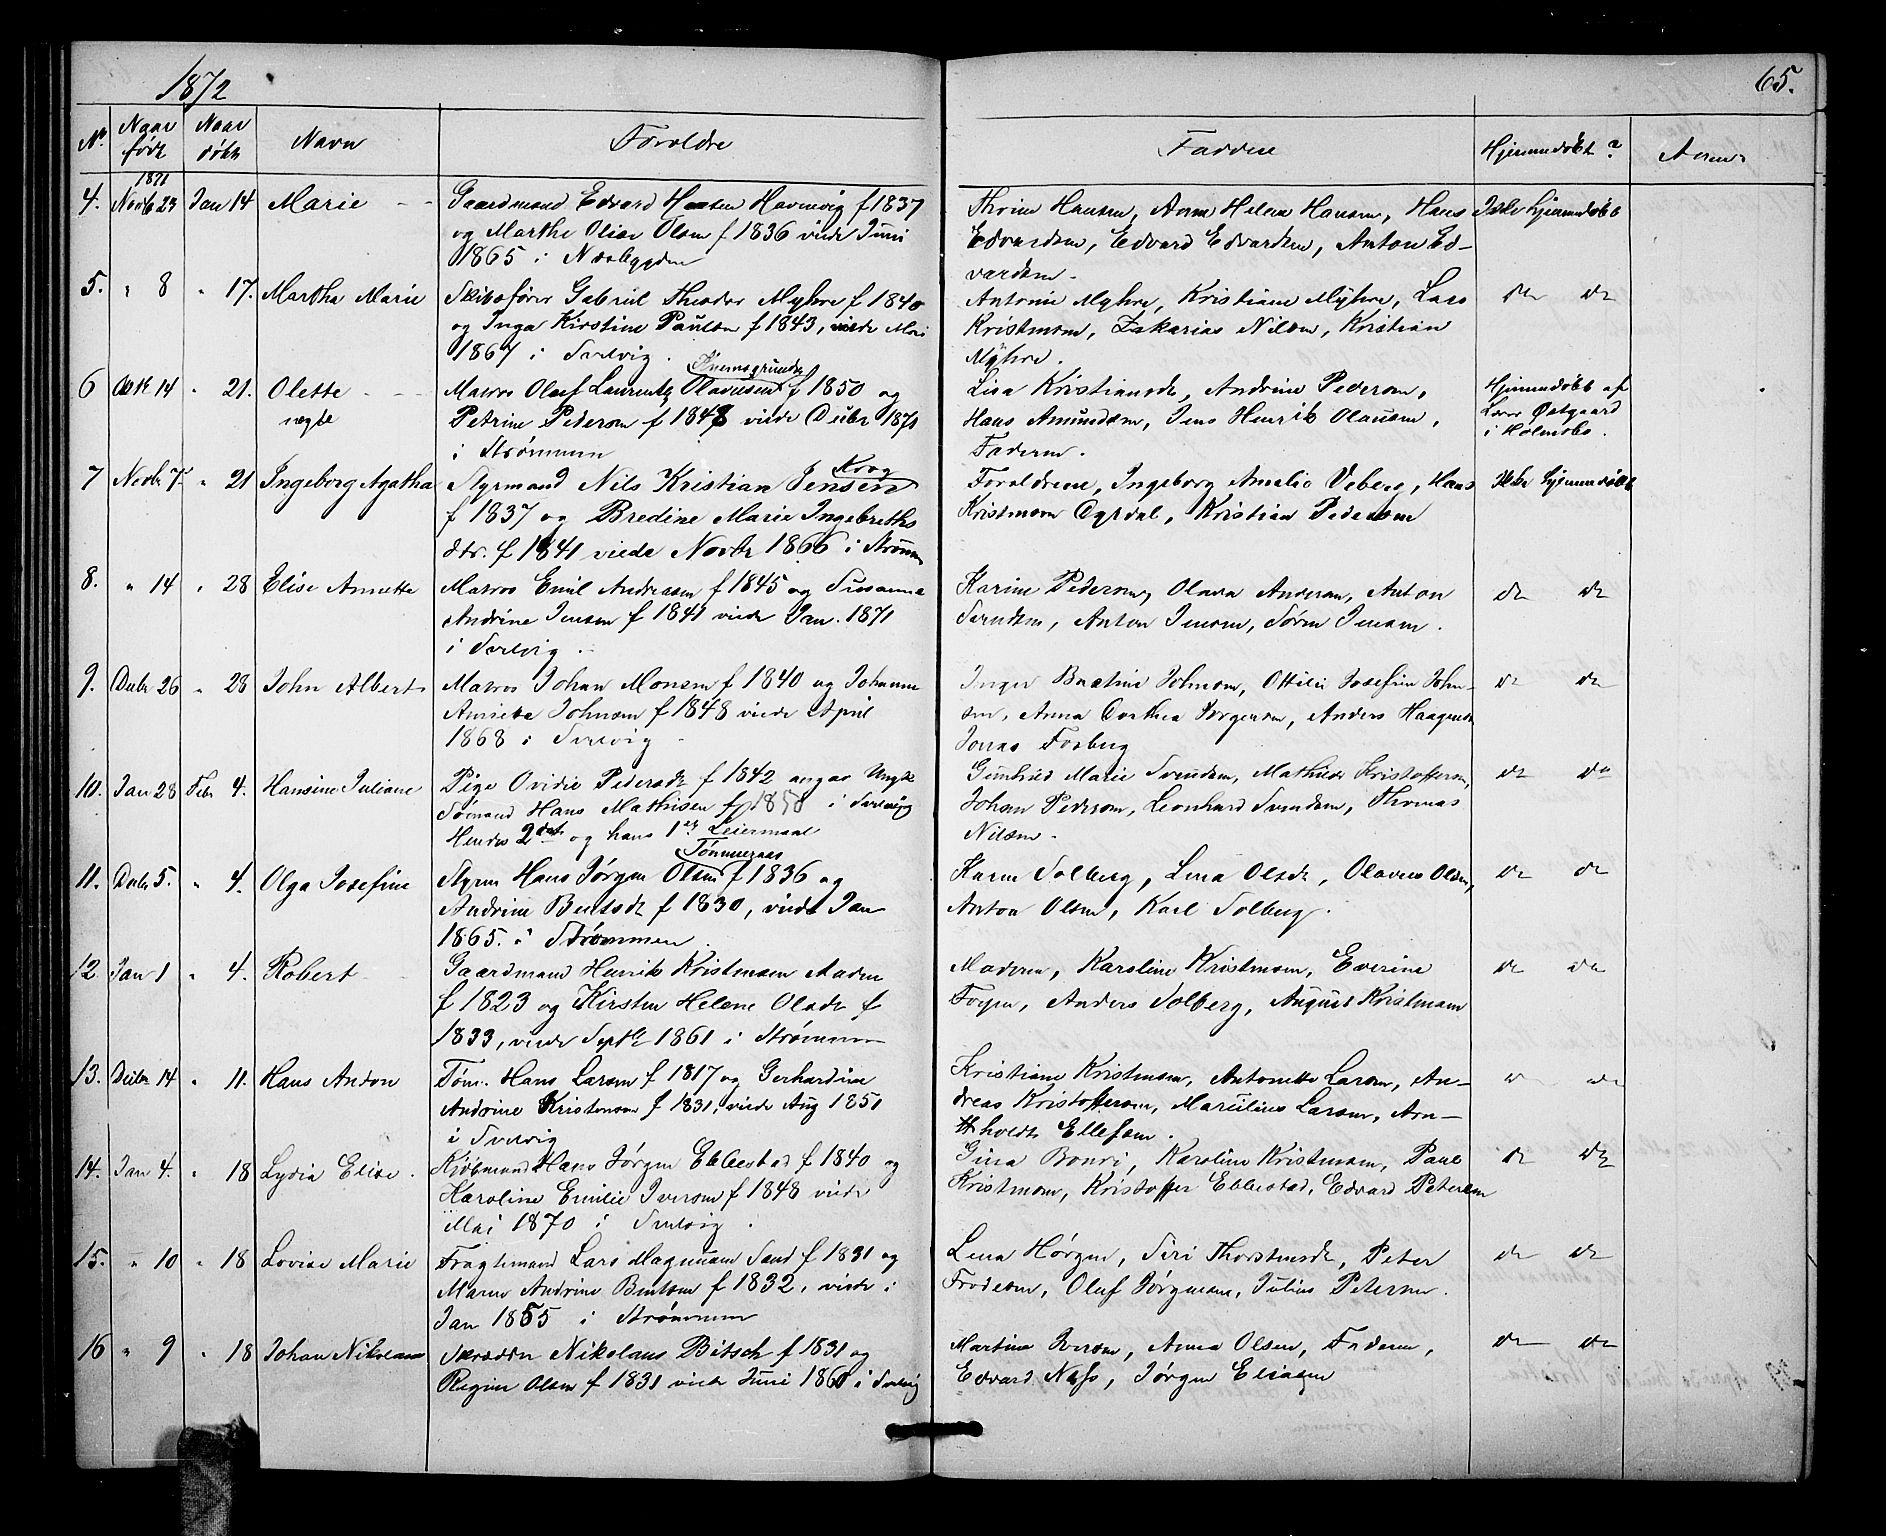 1872
65.
No Naar født Naar døbt Navn Forældre Faddere Hjemmedøbt? Anm.
1871
4. Novb 23 Jan 14 Marie Gaardmand Edvard Havnvig f 1837 Thrine Hansen, Anna Helene Hansen, Hans Ikke hjemmedøbt
og Marthe Olise Olsen f 1836 viede Juni Edvardsen, Edvard Edvardsen, Anton Ed-
1865 i Næsbygden vardsen.
5. " 8 " 17. Martha Marie Skibsfører Gabriel Theodor Myhre f 1840 Antonie Myhre, Kristiane Myhre, Lars do do
og Inga Kirstine Paulsen f 1843, viede Mai Kristensen, Zakarias Nilsen, Kristian
1867 i Svelvig. Myhre.
Snemsgrunden
6 Octb 14 " 21. Olette Matros Oluf Laurentz Olausen f 1850 og Lisa Kristiansdt, Andrine Pedersen, Hjemmedøbt af
ægte Petrine Pedersen f 1848 viede Decbr 1870 Hans Amundsen, Jens Henrik Olausen, Lærer Østgaard
i Strømmen Faderen. i Holmsbo.
Krog
7 Novbr 7 " 21 Ingeborg Agatha Styrmand Nils Kristian Jensen Forældrene, Ingeborg Amalie Veberg, Hans Ikke hjemmedøbt
f 1837 og Bredine Marie Ingebreths Kristensen Oyrdal, Kristian Pedersen
dtr. f 1841 viede Novbr 1866 i Strømm
8. " 14 " 28 Elise Annette Matros Emil Andreasen f 1845 og Susanna Karine Pedersen, Olava Andersen, Anton do do
Andrine Jensen f 1841 viede Jan. 1871 Svendsen, Anton Jensen, Søren Jensen.
i Svelvig.
9. Decbr 26 " 28 John Albert Matros Johan Monsen f 1840 og Johanne Inger Bastine Johnsen, Ottilie Josefine John- do do
Annette Johnsen f 1848 viede April sen, Anna Dorthea Jørgensen, Anders Haagensen
1868 i Svelvig Jonas Fosberg
10. Jan 28 Febr 4. Hansine Juliane Pige Ovidie Pedersdt f 1842 angav Ungk Gunhild Marie Svendsen, Mathilde Kristoffersen, do do
Sømand Hans Mathisen f 1850 i Svelvig Johan Pedersen, Leonhard Svendsen, Thomas
Hendes 2det og hans 1ste Leiermaal Nilsen.
Tømmeraas
11. Decbr 5. " 4. Olga Josefine Styrm Hans Jørgen Olsen f 1836 og Karen Solberg, Lina Olsdt, Olaves Olsen, do do
Andrine Bentsdt f 1830, viede Jan Anton Olsen, Karl Solberg.
1865. i Strømmen
12 Jan 1 " 4. Robert Gaardmand Henrik Kristensen Aadne Moderen, Karoline Kristensen, Everine do do
f 1823 og Kirsten Helene Olsdt f Fogen, Anders Solberg, August Kristensen
1833, viede Septb 1861 i Strømmen
13. Decbr 14 " 11. Hans Andon Tøm. Hans Larsen f 1817 og Gerhardine Kristiane Kristensen, Antonette Larsen, An- do do
Andrine Kristensen f 1831, viede Aug 1850 dreas Kristoffersen, Marselius Larsen, Arn-
i Svelvig holdt Ellefsen.
14. Jan 4. " 18 Lydia Elise. Kjøbmand Hans Jørgen Ebbestad f 1840 og Gina Bonri, Karoline Kristensen, Paul do do
Karoline Emilie Iversen f 1848 viede Kristensen, Kristoffer Ebbestad, Edvard Petersen
Mai 1870 i Svelvig.
15. " 10 " 18 Lovise Marie Fragtemand Lars Magnusen Sand f 1831 og Lina Hørgen, Siri Thorstensdt, Peter do do
Maren Andrine Bentsen f 1832, viede i Frodesen, Oluf Jørgensen, Julius Petersen.
Jan 1855 i Strømmen
16 " 9 " 18 Johan Nikolaus Skrædder Nikolaus Bitsch f 1831 og Martine Iversen, Anna Olsen, Faderen, do do
Regine Olsen f 1831 viede Juni 1860 i Svelvig Edvard Næss, Jørgen Eliasen